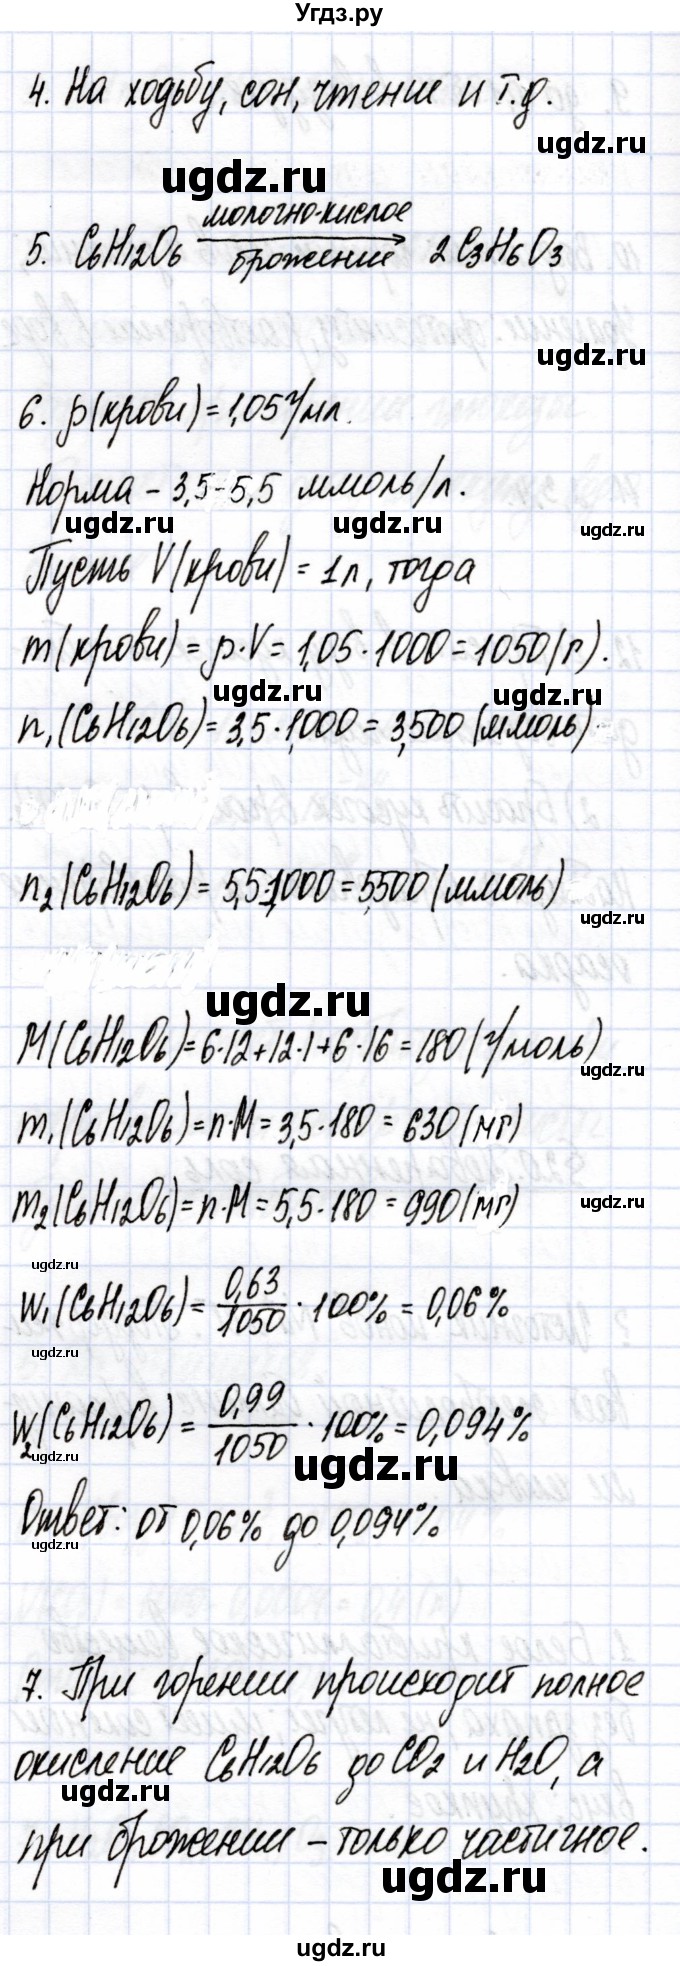 Угдз.ру
4. На ходьбу, сон, чтение и т.д.
ugdz.ru
ugdz.ru
молочно-кислое
5. C6H12O6 → 2C3H6O3
брожение
ugdz.ru
6. ρ(крови) = 1,05 г/мл.
Норма - 3,5-5,5 ммоль/л.
ugdz.ru ugdz.ru ugdz.ru
Пусть V(крови) = 1л, тогда
m(крови) = ρ·V = 1,05·1000 = 1050(г).
ugdz.ru ugdz.ru
n1(C6H12O6) = 3,5·1,000 = 3,500 (ммоль)
n2(C6H12O6) = 5,5·1,000 = 5,500 (ммоль)
ugdz.ru
ugdz.ru
M(C6H12O6) = 6·12+12·1+6·16 = 180 (г/моль)
ugdz.ru
m1(C6H12O6) = n·M = 3,5·180 = 630 (мг)
m2(C6H12O6) = n·M = 5,5·180 = 990 (мг)
ugdz.ru
ugdz.ru
W1(C6H12O6) = 0,63/1050 · 100% = 0,06%
ugdz.ru
W2(C6H12O6) = 0,99/1050 · 100% = 0,094%
ugdz.ru ugdz.ru
Ответ: от 0,06% до 0,094%
ugdz.ru
7. При горении происходит полное
окисление C6H12O6 до CO2 и H2O, а
ugdz.ru
при брожении - только частичное.
ugdz.ru
ugdz.ru